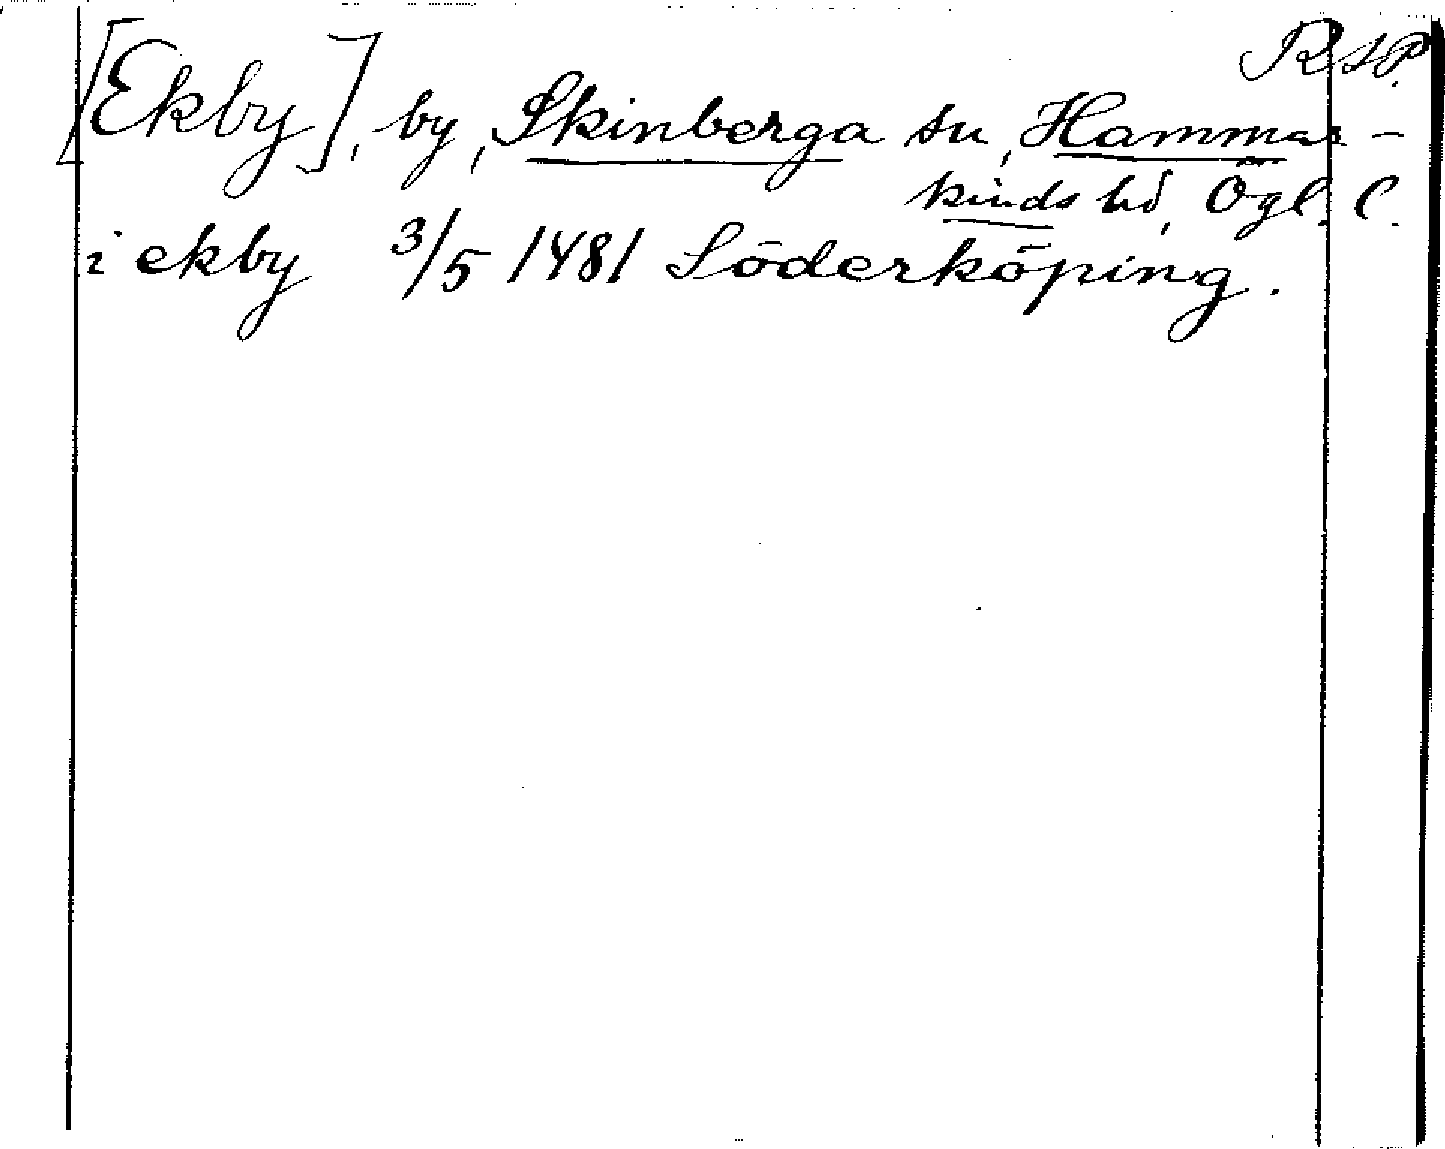 RAP.
[Ekby], by, Skinberga su, Hammar-
kinds hd, Ögl. C.
i ekby 3/5 1481 Söderköping.